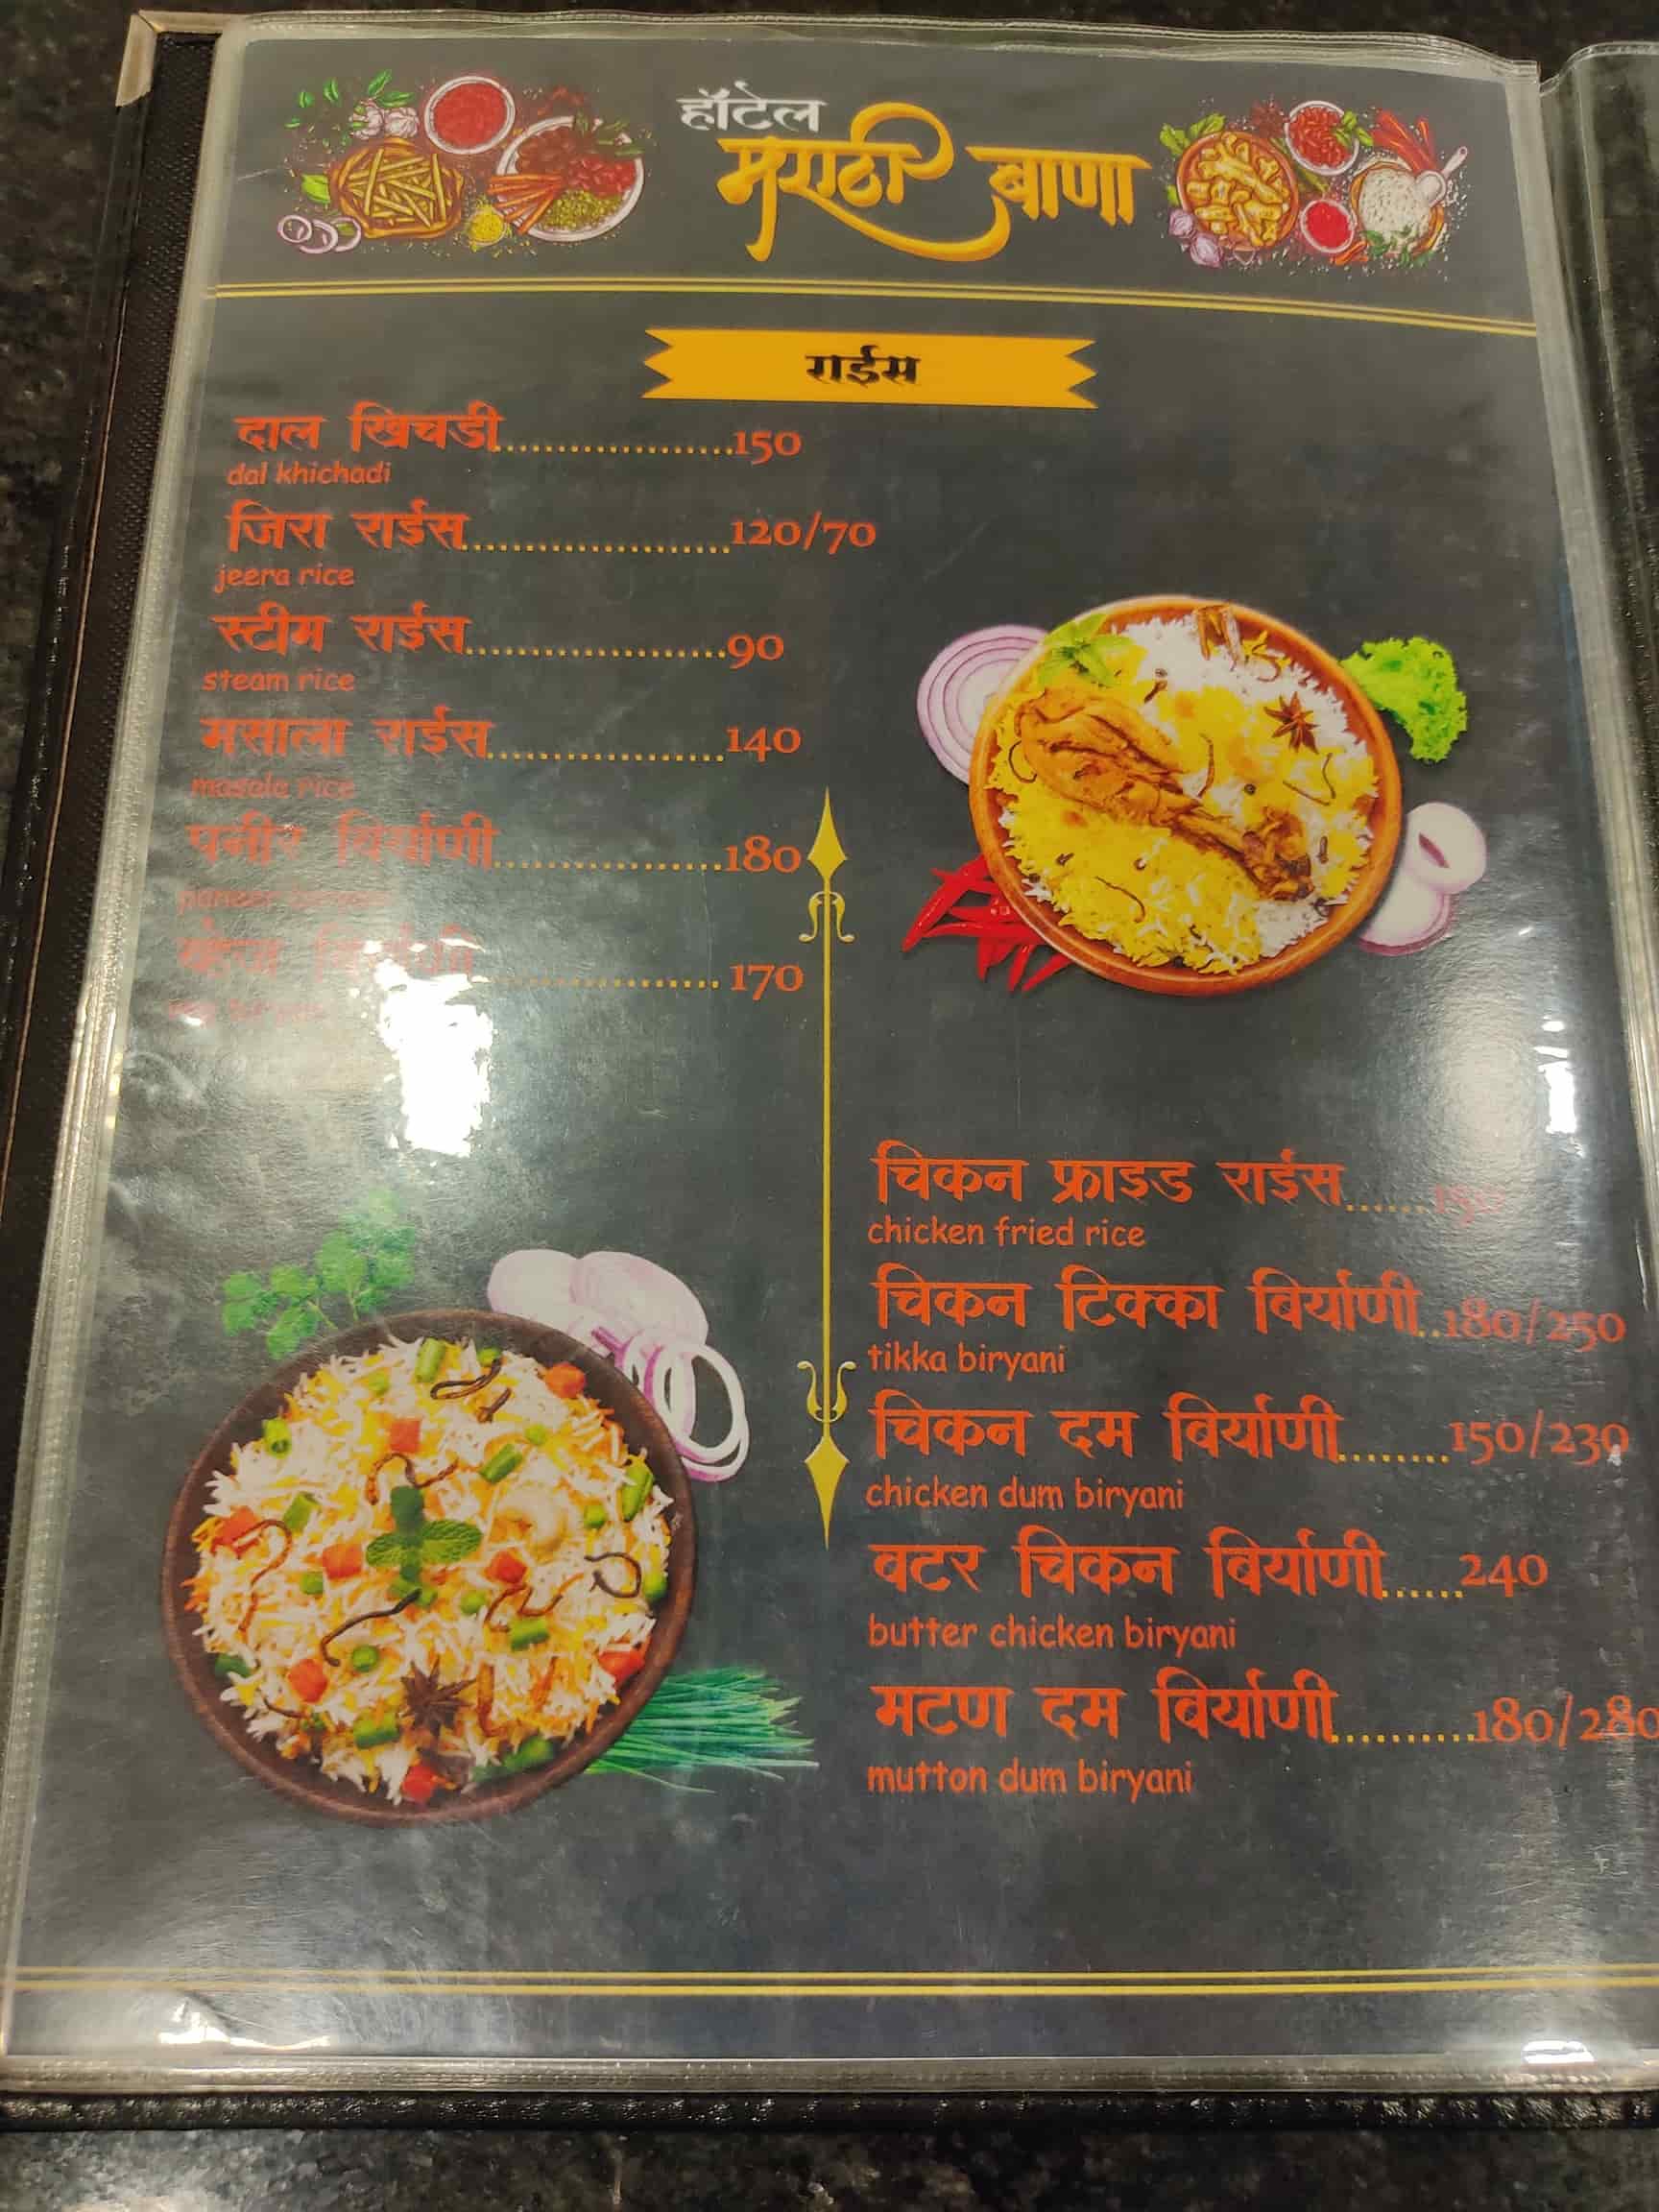 हॉटेल
मराठी बाणा
राईस
दाल खिचडी....................150
dal khichadi
जिरा राईस......................120/70
jeera rice
स्टीम राईस......................90
steam rice
मसाला राईस....................140
masala rice
पनीर बिर्याणी...................180
paneer
व्हेज बिर्याणी.................... 170
चिकन फ्राइड राईस.......150
chicken fried rice
चिकन टिक्का बिर्याणी..180/250
tikka biryani
चिकन दम बिर्याणी........150/230
chicken dum biryani
बटर चिकन बिर्याणी......240
butter chicken biryani
मटण दम बिर्याणी..........180/280
mutton dum biryani